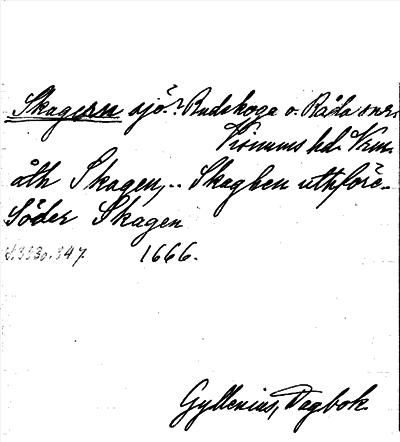 Skagern sjö i Rudskoga o. Råda snr.
Visnums hd. Vrm.
åth Skagen, .. Skagben uthföre
Söder Skagen
s. 3930. 347. 1666.
Gyllenius, Dagbok.